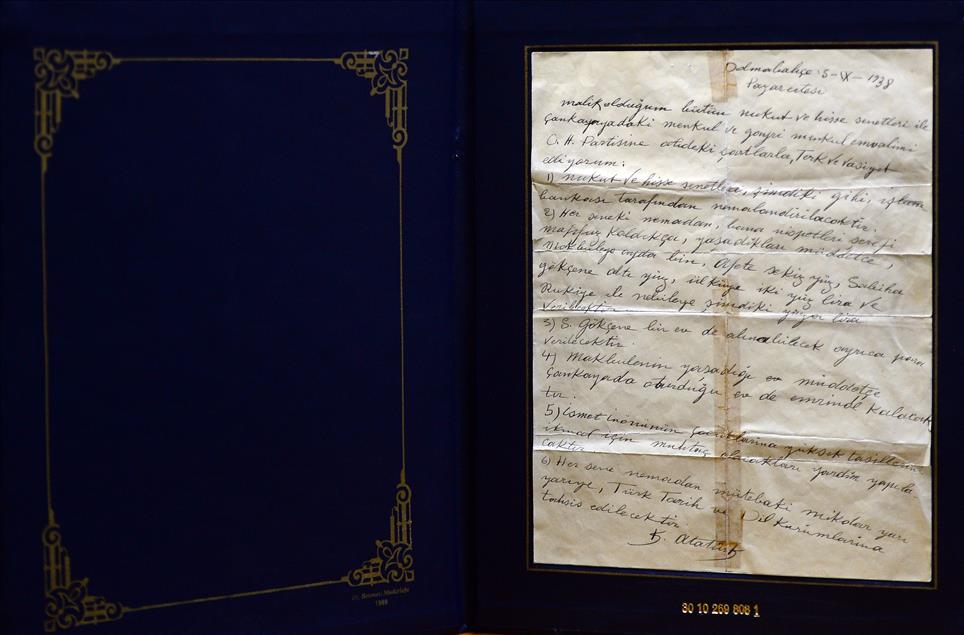 Dolmabahçe: 5-IX-1938
Pazartesi
Malik olduğum bütün nukut ve hisse senetleri ile
Çankayadaki menkul ve gayri menkul emvalimi
C. H. Partisine atideki şartlarla, Terk ve Vasiyet
ediyorum:
1) nukut ve hisse senetleri, şimdiki gibi, iş
bankası tarafından nemalandırılacaktır.
2) Her seneki nemadan, bana nispetleri şerefi
mahfuz kaldıkça, yaşadıkları müddetçe,
Makbuleye ayda bin, Afete sekiz yüz, Sabiha
gökçene altı yüz, ülküye iki yüz lira ve
Rukiye ile nebileye şimdiki yüzer lira
verilecektir.
3) S. Gökçene bir ev de alınabilecek ayrıca para
verilecektir.
4) Makbulenin yaşadığı müddetçe
Çankayada oturduğu ev de emrinde kalacak
tır.
5) ismet inönünün çocuklarına yüksek tahsillerini
ikmal için muhtaç olacakları yardım yapıla
caktır.
6) Her sene nemadan mütebaki miktar yarı
yarıya, Türk Tarih ve Dil Kurumlarına
tahsis edilecektir.
K. Atatürk
1989
30 10 269 808 1